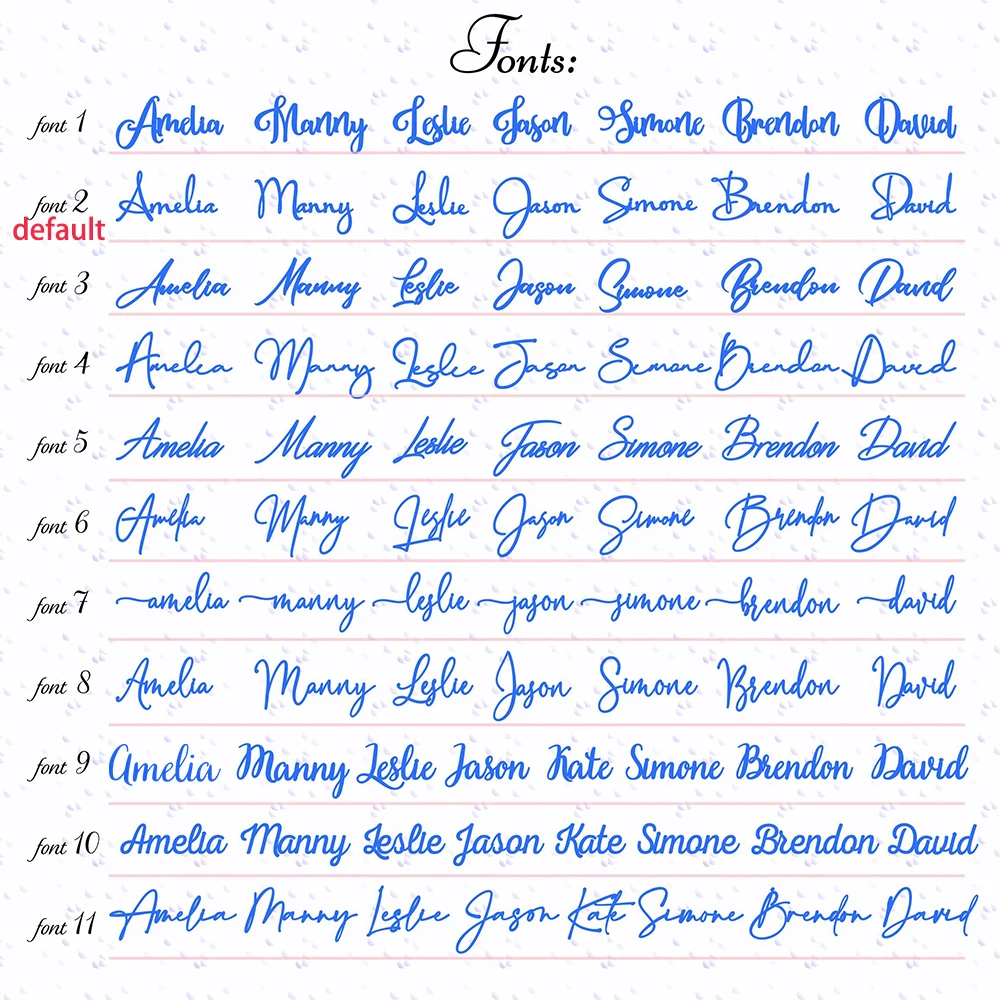 Fonts:
font 1 Amelia Manny Leslie Jason Simone Brendon David
font 2 Amelia Manny Leslie Jason Simone Brendon David
default
font 3 Amelia Manny Leslie Jason Simone Brendon David
font 4 Amelia Manny Leslie Jason Simone Brendon David
font 5 Amelia Manny Leslie Jason Simone Brendon David
font 6 Amelia Manny Leslie Jason Simone Brendon David
font 7 amelia manny leslie jason simone brendon david
font 8 Amelia Manny Leslie Jason Simone Brendon David
font 9 Amelia Manny Leslie Jason Kate Simone Brendon David
font 10 Amelia Manny Leslie Jason Kate Simone Brendon David
font 11 Amelia Manny Leslie Jason Kate Simone Brendon David